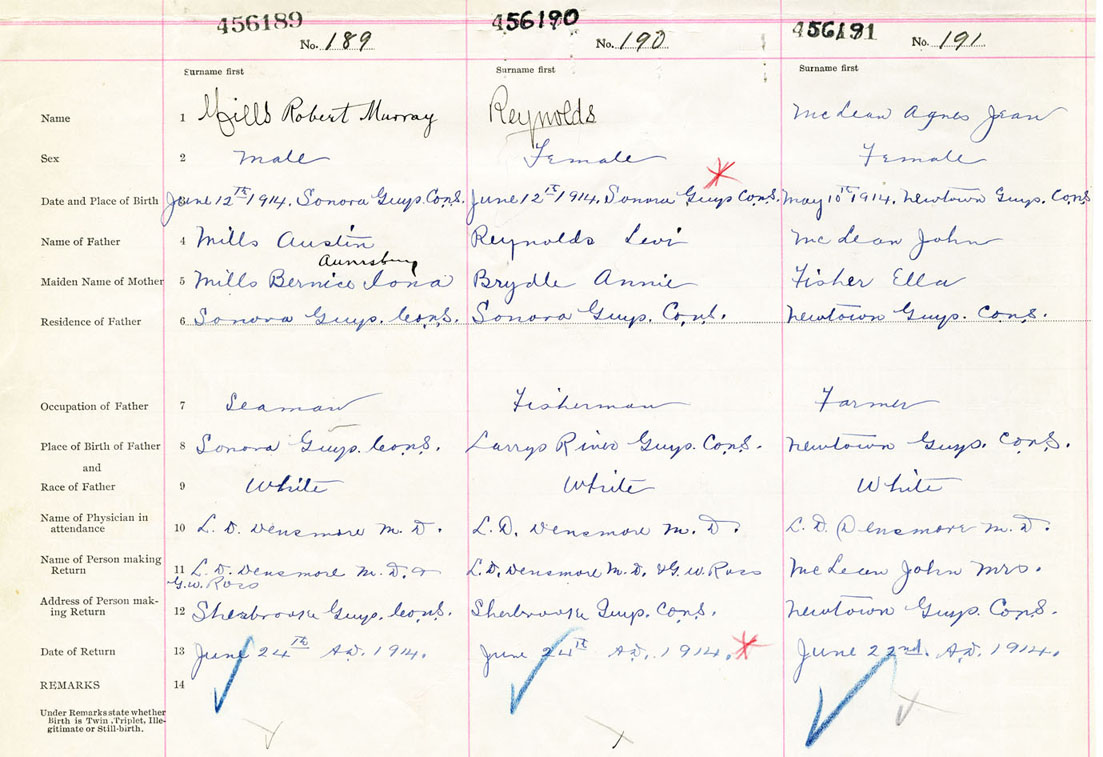 456189 456190 456191
No. 189 No. 190 No. 191
Surname first Surname first Surname first
Name 1 Mills Robert Murray Reynolds McLean Agnes Jean
Sex 2 Male Female Female
Date and Place of Birth 3 June 12th 1914. Sonora Guys. Cons. June 12th 1914. Sonora Guys Cons. May 10th 1914. Newtown Guys. Cons
Name of Father 4 Mills Austin Reynolds Levi McLean John
Maiden Name of Mother 5 Mills Bernice Iona Brydle Annie Fisher Ella
Residence of Father 6 Sonora Guys. Cons. Sonora Guys. Cons. Newtown Guys. Cons.
Occupation of Father 7 Seaman Fisherman Farmer
Place of Birth of Father 8 Sonora Guys. Cons. Larrys River Guys. Cons. Newtown Guys. Cons.
and
Race of Father 9 White White White
Name of Physician in
attendance 10 L. D. Densmore M. D. L. D. Densmore M. D. L. D. Densmore M. D.
Name of Person making
Return 11 L. D. Densmore M. D. & L. D. Densmore M. D. & G. W. Ross McLean John Mrs.
G. W. Ross
Address of Person mak-
ing Return 12 Sherbrooke Guys. Cons. Sherbrooke Guys. Cons. Newtown Guys. Cons.
Date of Return 13 June 24th A.D. 1914. June 24th A.D. 1914. June 22nd. A.D. 1914.
REMARKS 14
Under Remarks state whether
Birth is Twin, Triplet, Ille-
gitimate or Still-birth.